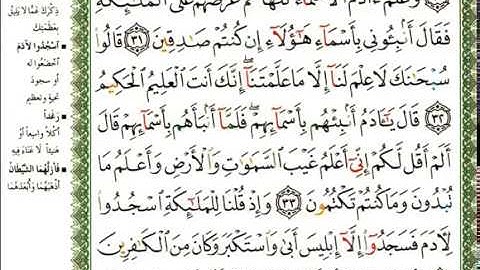 وَعَلَّمَ ءَادَمَ ٱلْأَسْمَآءَ كُلَّهَا ثُمَّ عَرَضَهُمْ عَلَى ٱلْمَلَٰٓئِكَةِ
فَقَالَ أَنۢبِـُٔونِى بِأَسْمَآءِ هَٰٓؤُلَآءِ إِن كُنتُمْ صَٰدِقِينَ ٣١ قَالُوا۟
سُبْحَٰنَكَ لَا عِلْمَ لَنَآ إِلَّا مَا عَلَّمْتَنَآ ۖ إِنَّكَ أَنتَ ٱلْعَلِيمُ ٱلْحَكِيمُ
٣٢ قَالَ يَٰٓـَٔادَمُ أَنۢبِئْهُم بِأَسْمَآئِهِمْ ۖ فَلَمَّآ أَنۢبَأَهُم بِأَسْمَآئِهِمْ قَالَ
أَلَمْ أَقُل لَّكُمْ إِنِّىٓ أَعْلَمُ غَيْبَ ٱلسَّمَٰوَٰتِ وَٱلْأَرْضِ وَأَعْلَمُ مَا
تُبْدُونَ وَمَا كُنتُمْ تَكْتُمُونَ ٣٣ وَإِذْ قُلْنَا لِلْمَلَٰٓئِكَةِ ٱسْجُدُوا۟
لِءَادَمَ فَسَجَدُوٓا۟ إِلَّآ إِبْلِيسَ أَبَىٰ وَٱسْتَكْبَرَ وَكَانَ مِنَ ٱلْكَٰفِرِينَ
ذِكْرِكَ عَمَّا لا يَلِيقُ
بعَظَمَتِكَ
اسْجُدُوا لآدَمَ
اخضعوا له
أو سجود
تحية وتعظيم
رَغَداً
أكلاً واسعاً أو
هنيئاً لا عناء فيه
فَأزَلَّهُمَا الشَّيْطَانُ
أذهبهما وأبعدهما